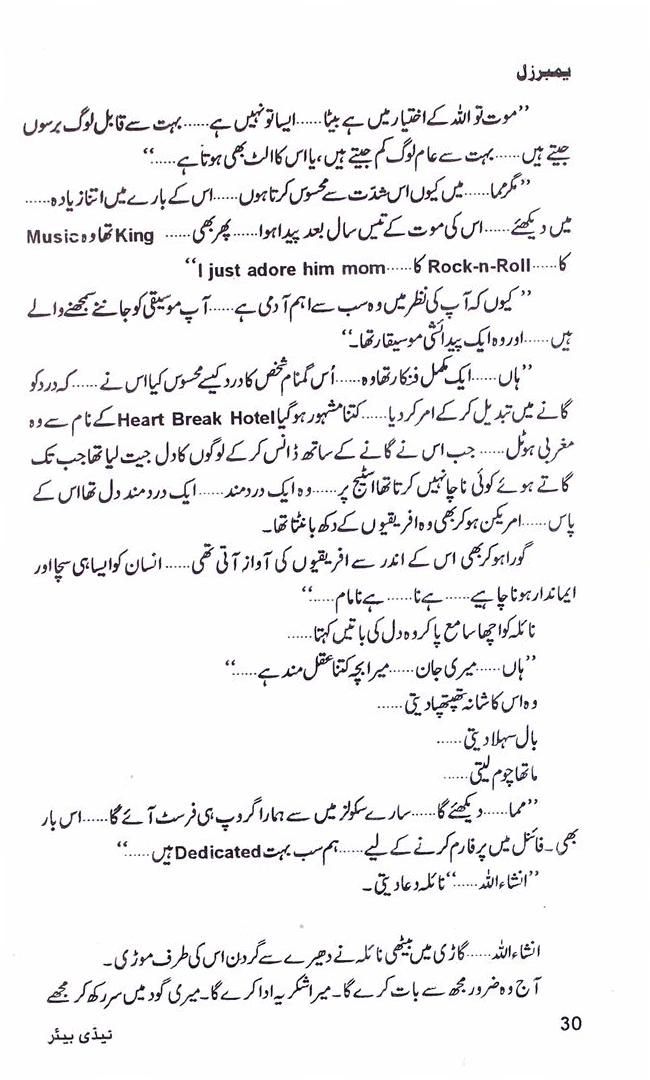 یمبرزل
”موت تو اللہ کے اختیار میں ہے بیٹا......ایسا تو نہیں ہے......بہت سے قابل لوگ برسوں
جیتے ہیں......بہت سے عام لوگ کم جیتے ہیں، یا اس کا الٹ بھی ہوتا ہے......“
”مگر مما......میں کیوں اس شدّت سے محسوس کرتا ہوں......اس کے بارے میں اتنا زیادہ......
میں دیکھئے......اس کی موت کے تیس سال بعد پیدا ہوا......پھر بھی...... King تھا وہ Music
کا......Rock-n-Roll کا......I just adore him mom“
”کیوں کہ آپ کی نظر میں وہ سب سے اہم آدمی ہے......آپ موسیقی کو جاننے سمجھنے والے
ہیں......اور وہ ایک پیدائشی موسیقار تھا۔“
”ہاں......ایک مکمل فنکار تھا وہ......اُس گمنام شخص کا درد کیسے محسوس کیا اس نے......کہ درد کو
گانے میں تبدیل کر کے امر کر دیا......کتنا مشہور ہو گیا Heart Break Hotel کے نام سے وہ
مغربی ہوٹل......جب اس نے گانے کے ساتھ ڈانس کر کے لوگوں کا دل جیت لیا تھا جب تک
گاتے ہوئے کوئی ناچا نہیں کرتا تھا اسٹیج پر......وہ ایک دردمند......ایک دردمند دل تھا اس کے
پاس......امریکن ہو کر بھی وہ افریقیوں کے دکھ بانٹتا تھا۔
گورا ہو کر بھی اس کے اندر سے افریقیوں کی آواز آتی تھی......انسان کو ایسا ہی سچا اور
ایماندار ہونا چاہیے......ہے نا......ہے نا مام......“
نائلہ کو اچھا سامع پا کر وہ دل کی باتیں کہتا......
”ہاں......میری جان......میرا بچہ کتنا عقل مند ہے......“
وہ اس کا شانہ تھپتھپا دیتی......
بال سہلا دیتی......
ماتھا چوم لیتی......
”مما......دیکھئے گا......سارے سکولز میں سے ہمارا گروپ ہی فرسٹ آئے گا......اس بار
بھی۔ فائنل میں پرفارم کرنے کے لیے......ہم سب بہت Dedicated ہیں......“
”انشاءاللہ......“ نائلہ دعا دیتی۔
انشاءاللہ......گاڑی میں بیٹھی نائلہ نے دھیرے سے گردن اس کی طرف موڑی۔
آج وہ ضرور مجھ سے بات کرے گا۔ میرا شکریہ ادا کرے گا۔ میری گود میں سر رکھ کر مجھے
30
ٹیڈی بیئر